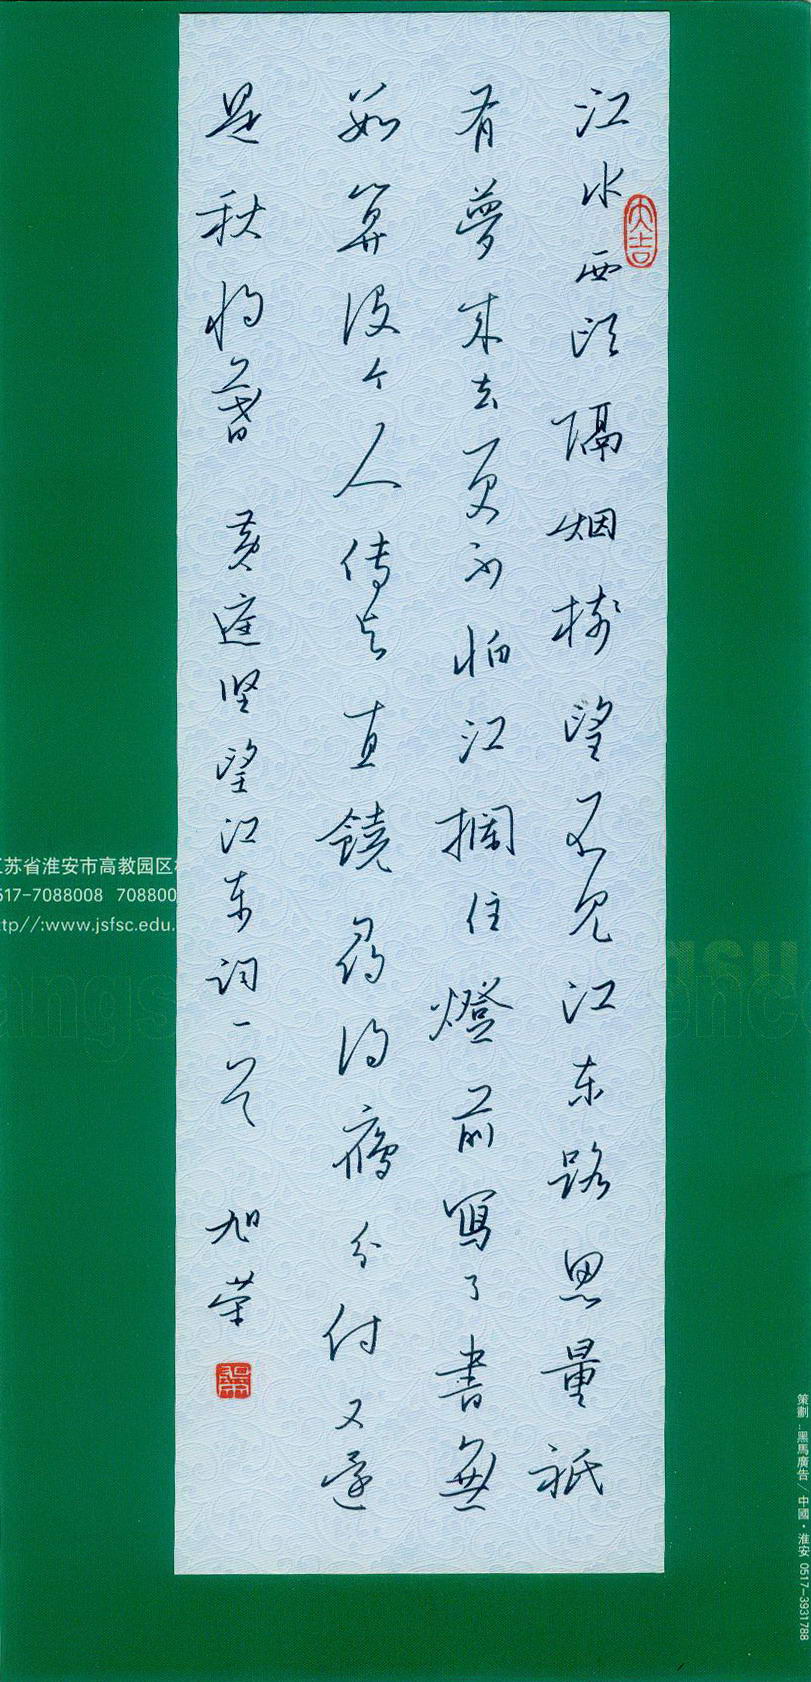 江水西頭隔烟樹望不見江东路思量祇
有夢来去更不怕江攔住燈前寫了書無
數算没个人傳与直饒尋得雁分付又還
是秋将暮 黄庭坚望江东词一首 旭荣
大吉
江苏省淮安市高教园区
517-7088008 708800
tp//:www.jsfsc.edu.
策劃：黑馬廣告／中國·淮安 0517-3931788